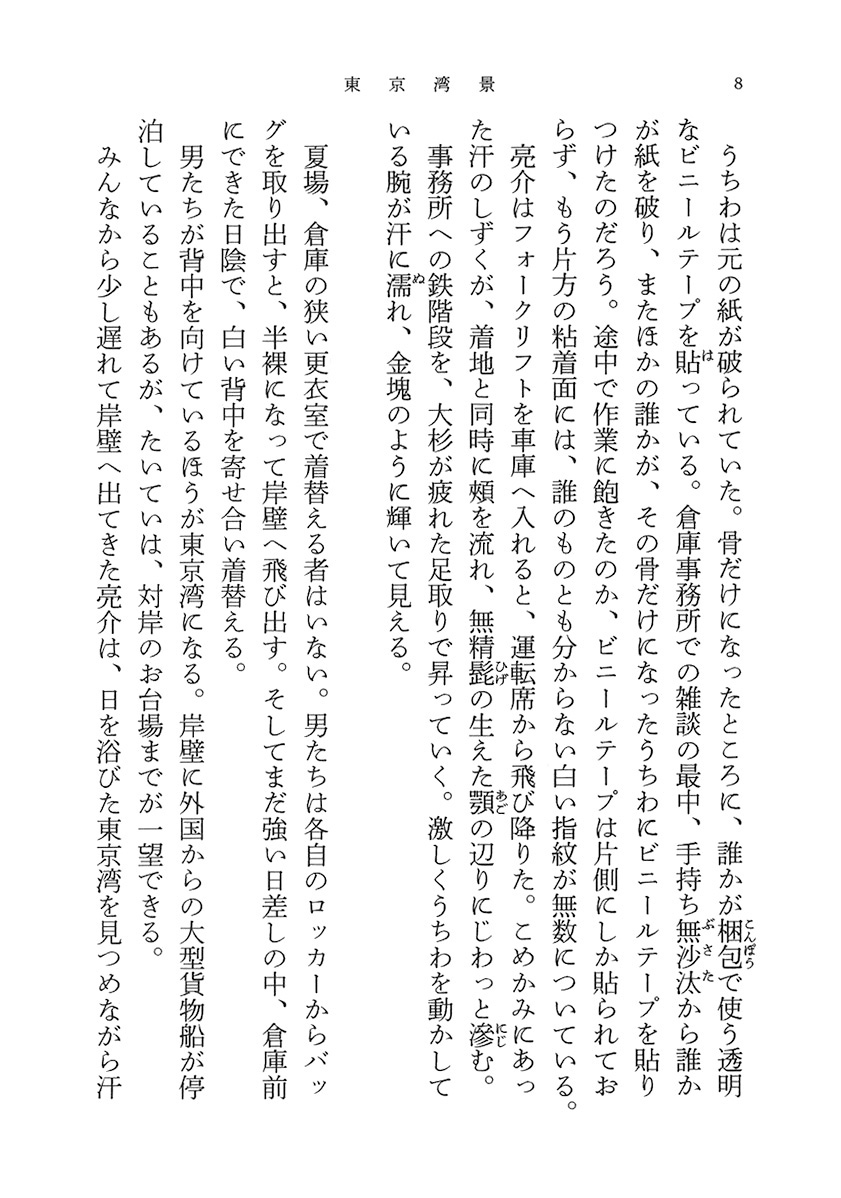 東京湾景
8
うちわは元の紙が破られていた。骨だけになったところに、誰かが梱包で使う透明
なビニールテープを貼っている。倉庫事務所での雑談の最中、手持ち無沙汰から誰か
が紙を破り、またほかの誰かが、その骨だけになったうちわにビニールテープを貼り
つけたのだろう。途中で作業に飽きたのか、ビニールテープは片側にしか貼られてお
らず、もう片方の粘着面には、誰のものとも分からない白い指紋が無数についている。
亮介はフォークリフトを車庫へ入れると、運転席から飛び降りた。こめかみにあっ
た汗のしずくが、着地と同時に頰を流れ、無精髭の生えた顎の辺りにじわっと滲む。
事務所への鉄階段を、大杉が疲れた足取りで昇っていく。激しくうちわを動かして
いる腕が汗に濡れ、金塊のように輝いて見える。
夏場、倉庫の狭い更衣室で着替える者はいない。男たちは各自のロッカーからバッ
グを取り出すと、半裸になって岸壁へ飛び出す。そしてまだ強い日差しの中、倉庫前
にできた日陰で、白い背中を寄せ合い着替える。
男たちが背中を向けているほうが東京湾になる。岸壁に外国からの大型貨物船が停
泊していることもあるが、たいていは、対岸のお台場までが一望できる。
みんなから少し遅れて岸壁へ出てきた亮介は、日を浴びた東京湾を見つめながら汗